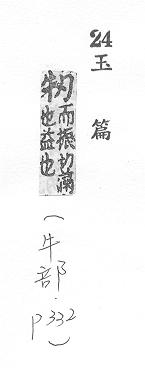 24
玉篇
牣而振切滿
也益也
（牛部．P332）